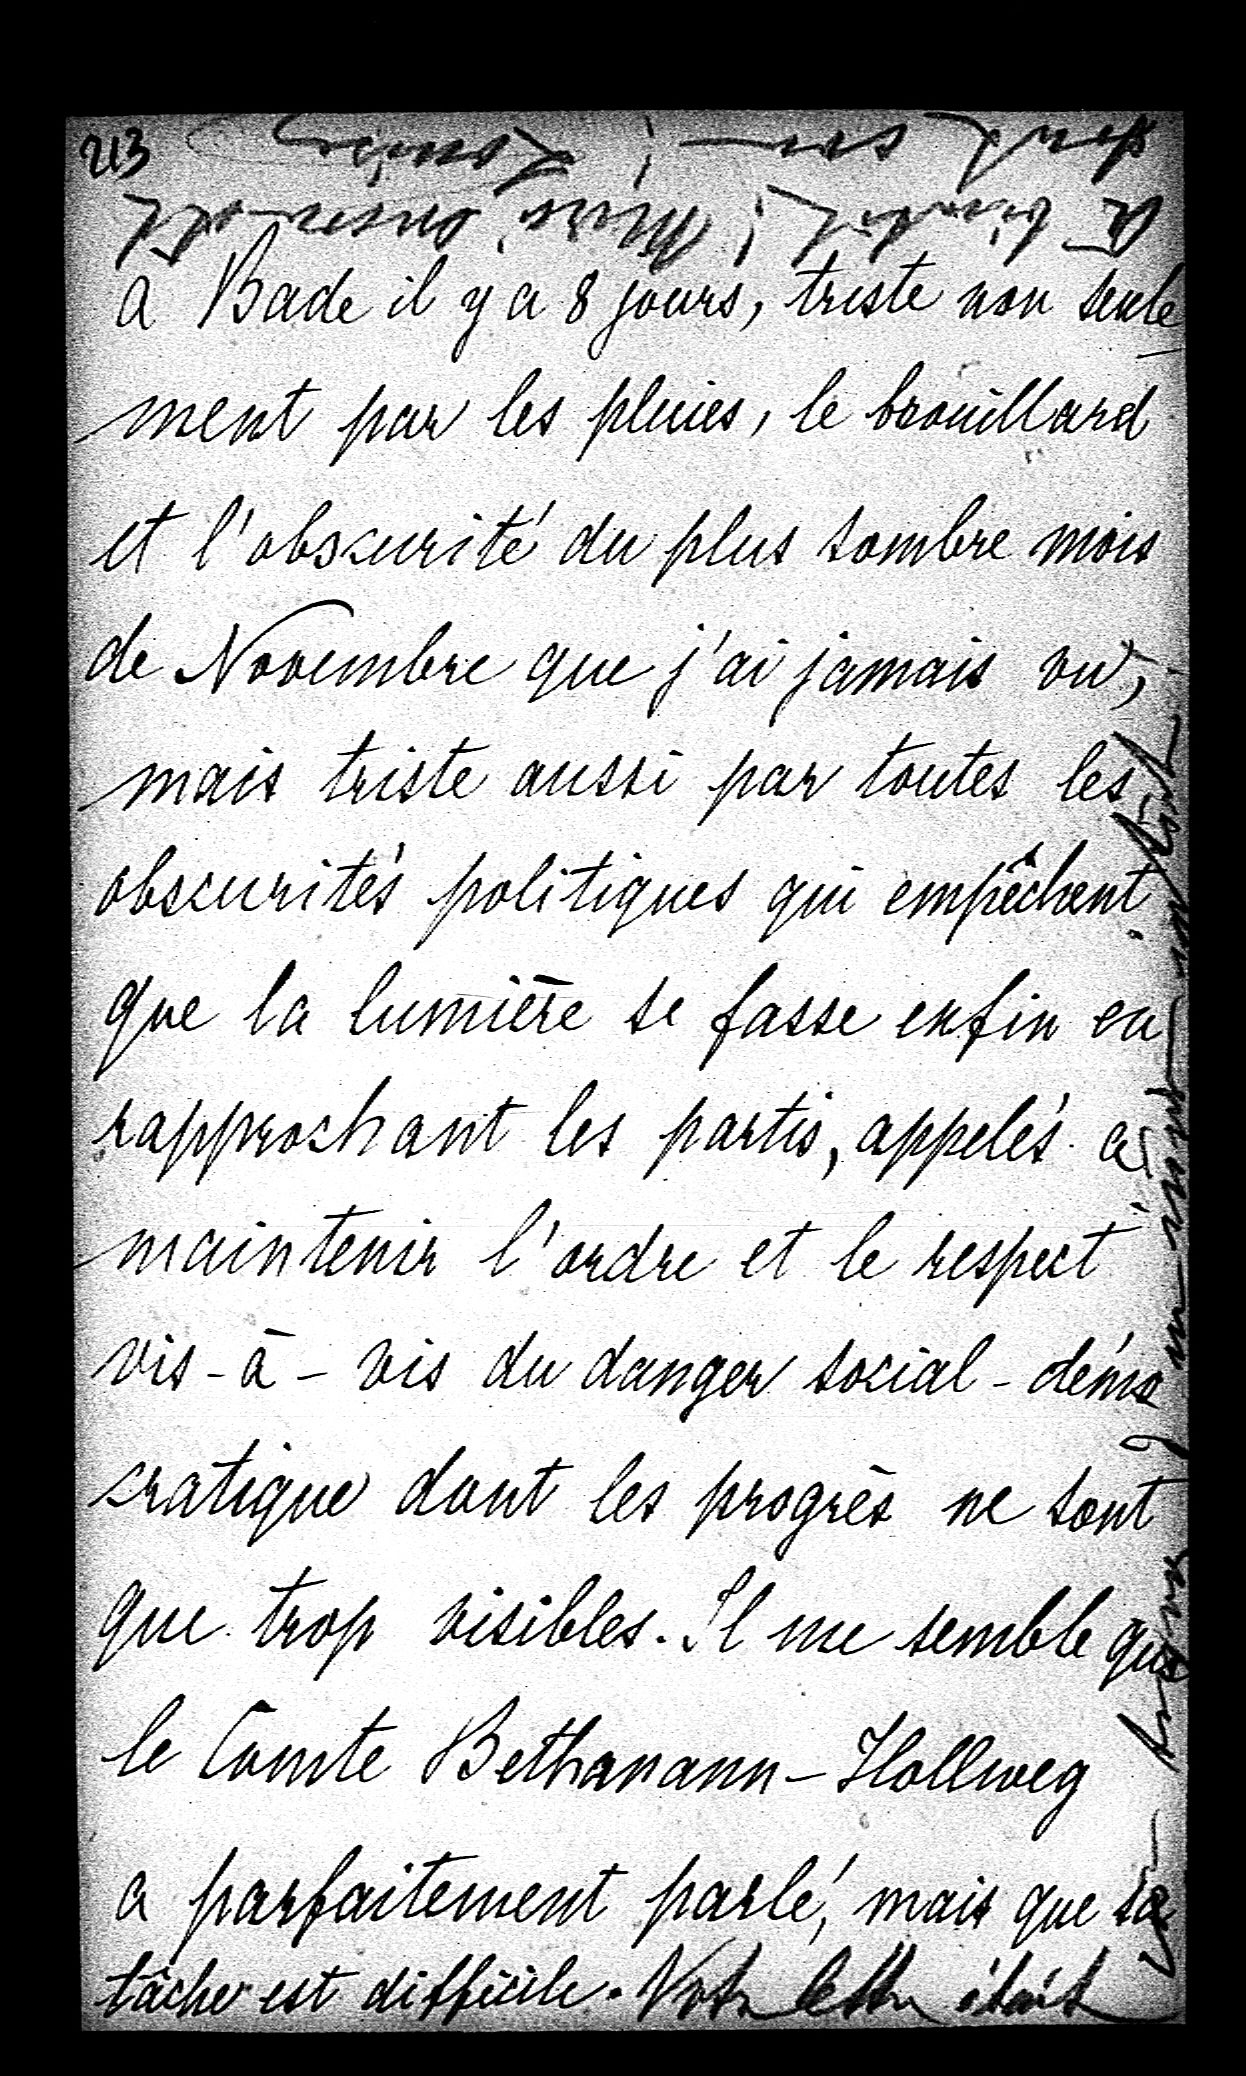 213
à Bade il y a 8 jours, triste non seule
ment par les pluies, le brouillard
et l'obscurité du plus sombre mois
de Novembre que j'ai jamais vu,
mais triste aussi par toutes les
obscurités politiques qui empêchent
que la lumière se fasse enfin en
rapprochant les partis, appelés à
maintenir l'ordre et le respect
vis-à-vis du danger social-démo
cratique dont les progrès ne sont
que trop visibles. Il me semble que
le Comte Bethmann-Hollweg
a parfaitement parlé, mais que sa
tâche est difficile. Votre lettre était
à bientôt
Louise